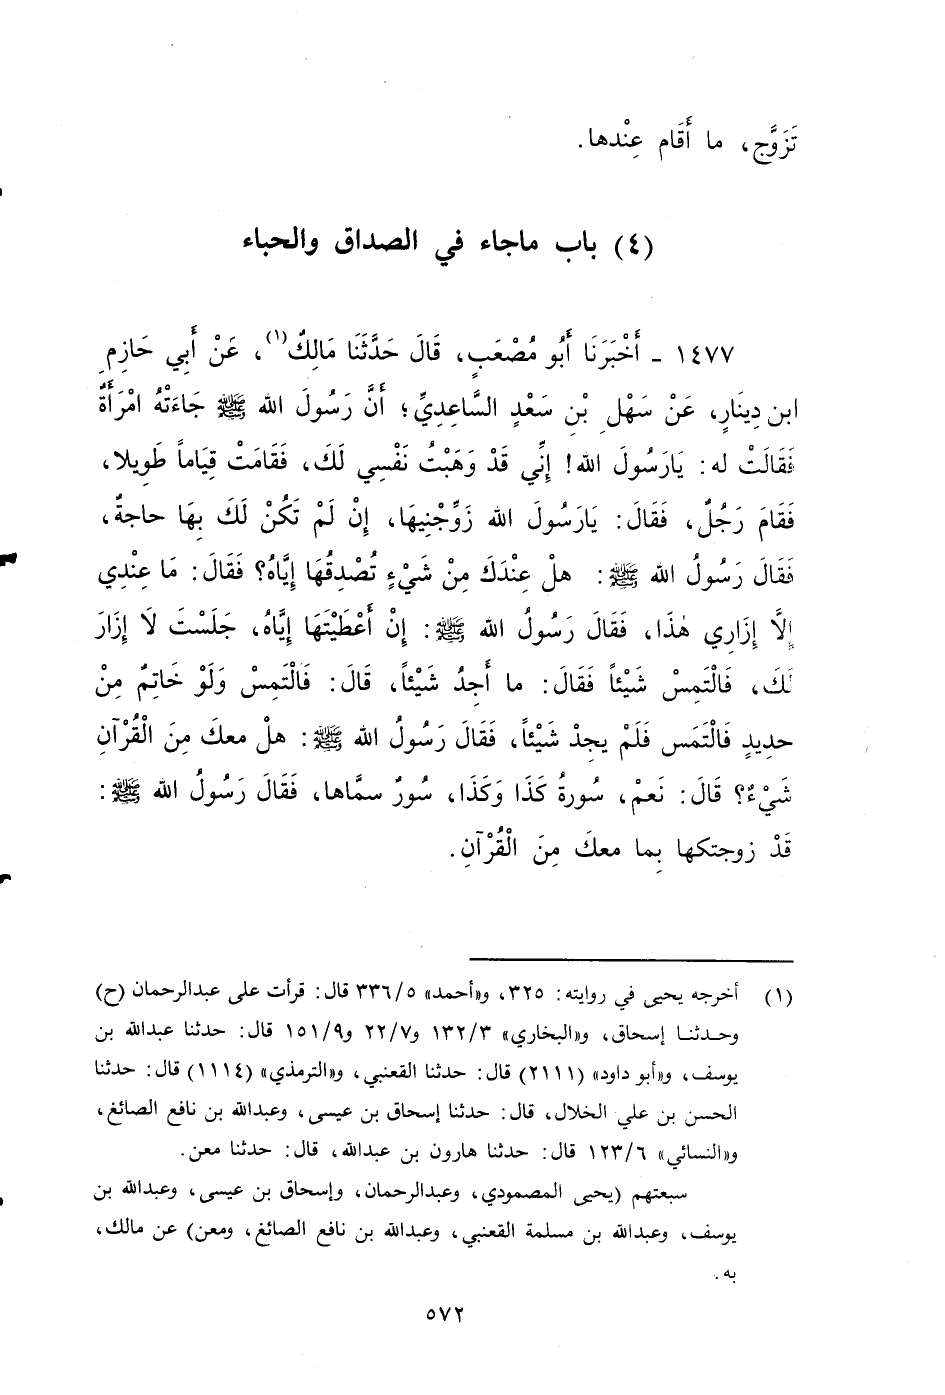 تَزَوَّج، ما أَقَام عِنْدها.
(٤) باب ماجاء في الصداق والحباء
١٤٧٧ - أَخْبَرَنَا أَبُو مُصْعَبٍ، قَالَ حَدَّثَنَا مَالِكٌ(١)، عَنْ أَبِي حَازِمِ
ابن دِينَارٍ، عَنْ سَهْلِ بْنِ سَعْدٍ السَّاعِدِيِّ؛ أَنَّ رَسُولَ الله ﷺ جَاءَتْهُ امْرَأَةٌ
فَقَالَتْ له: يَارَسُولَ الله! إِنِّي قَدْ وَهَبْتُ نَفْسِي لَكَ، فَقَامَتْ قِيَاماً طَوِيلا،
فَقَامَ رَجُلٌ، فَقَالَ: يَارَسُولَ الله زَوِّجْنِيهَا، إِنْ لَمْ تَكُنْ لَكَ بِهَا حاجةٌ،
فَقَالَ رَسُولُ الله ﷺ: هلْ عِنْدَكَ مِنْ شَيْءٍ تُصْدِقُهَا إِيَّاهُ؟ فَقَالَ: مَا عِنْدِي
إِلَّا إِزَارِي هٰذَا، فَقَالَ رَسُولُ الله ﷺ: إِنْ أَعْطَيْتَهَا إِيَّاهُ، جَلَسْتَ لَا إِزَارَ
لَكَ، فَالْتَمِسْ شَيْئاً فَقَالَ: ما أَجِدُ شَيْئاً، قَالَ: فَالْتَمِسْ وَلَوْ خَاتِمٌ مِنْ
حديدٍ فَالْتَمَس فَلَمْ يجِدْ شَيْئاً، فَقَالَ رَسُولُ الله ﷺ: هلْ معكَ مِنَ الْقُرْآنِ
شَيْءٌ؟ قَالَ: نَعمْ، سُورةُ كَذَا وَكَذَا، سُورٌ سمَّاها، فَقَالَ رَسُولُ الله ﷺ:
قَدْ زوجتكها بِما معكَ مِنَ الْقُرْآنِ.
(١) أخرجه يحيى في روايته: ٣٢٥، و«أحمد» ٣٣٦/٥ قال: قرأت على عبدالرحمان (ح)
وحدثنا إسحاق، و«البخاري» ١٣٢/٣ و٢٢/٧ و١٥١/٩ قال: حدثنا عبدالله بن
يوسف، و«أبو داود» (٢١١١) قال: حدثنا القعنبي، و«الترمذي» (١١١٤) قال: حدثنا
الحسن بن علي الخلال، قال: حدثنا إسحاق بن عيسى، وعبدالله بن نافع الصائغ،
و«النسائي» ١٢٣/٦ قال: حدثنا هارون بن عبدالله، قال: حدثنا معن.
سبعتهم (يحيى المصمودي، وعبدالرحمان، وإسحاق بن عيسى، وعبدالله بن
يوسف، وعبدالله بن مسلمة القعنبي، وعبدالله بن نافع الصائغ، ومعن) عن مالك،
به.
٥٧٢